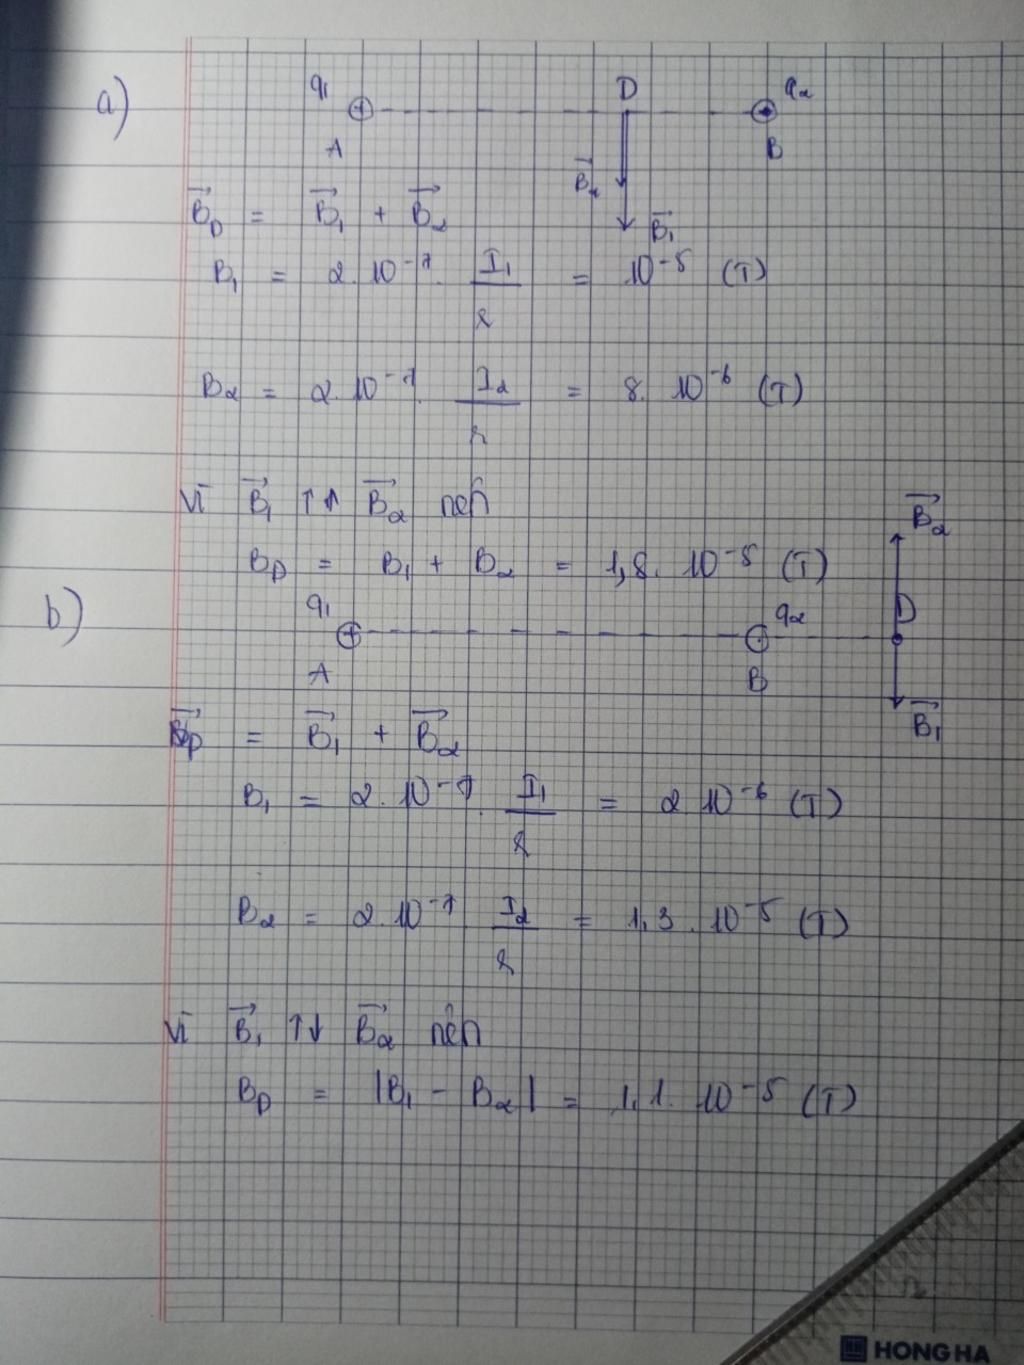 a)
q₁ D q₂
A B
B⃗₂
B⃗_D = B⃗₁ + B⃗₂
B⃗₁
B₁ = 2.10⁻⁷. I₁/r = 10⁻⁵ (T)
B₂ = 2.10⁻⁷. I₂/r = 8.10⁻⁶ (T)
Vì B⃗₁ ↑↑ B⃗₂ nên
B⃗₂
B_D = B₁ + B₂ = 1,8.10⁻⁵ (T)
b)
q₁ q₂ D
A B
B⃗_D = B⃗₁ + B⃗₂
B⃗₁
B₁ = 2.10⁻⁷. I₁/r = 2.10⁻⁶ (T)
B₂ = 2.10⁻⁷ I₂/r = 1,3.10⁻⁵ (T)
Vì B⃗₁ ↑↓ B⃗₂ nên
B_D = |B₁ - B₂| = 1,1.10⁻⁵ (T)
HONG HA